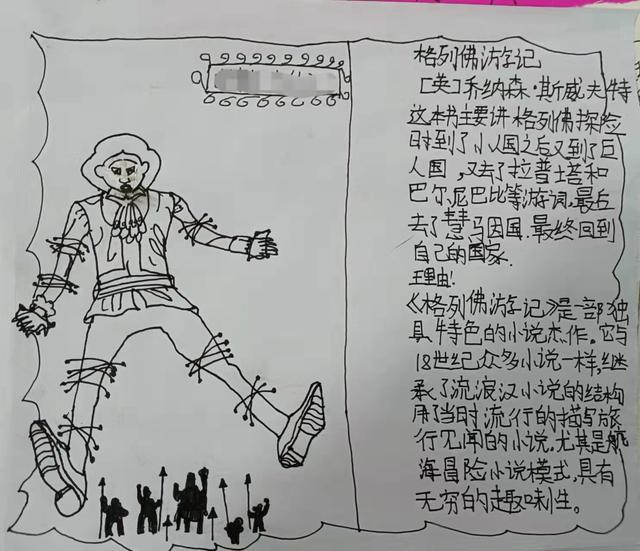 格列佛游记
[英]乔纳森·斯威夫特
这本书主要讲格列佛探险
时到了小人国之后又到了巨
人国，又去了拉普士荅和
巴尔尼巴比等游词，最后
去了慧马因国.最终回到
自己的国家.
王理由!
《格列佛游记》是一部独
具特色的小说杰作。它与
18世纪众多小说一样，继
承了流浪汉小说的结构
用了当时流行的描写旅
行见闻的小说，尤其是航
海冒险小说模式，具有
无穷的趣味性。